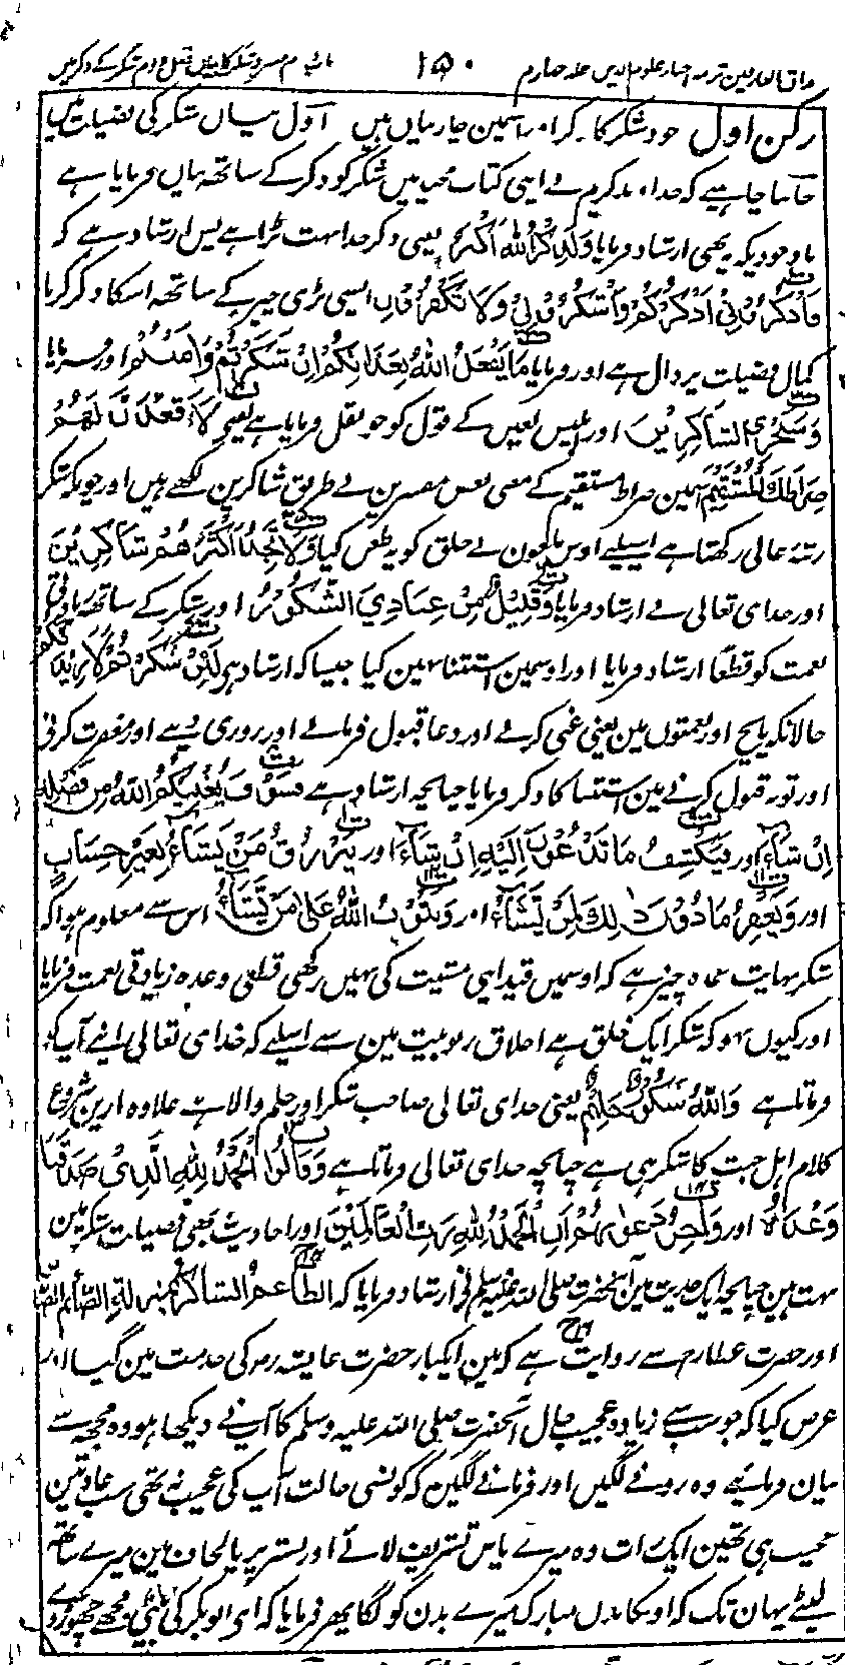 مذاق العارفین ترجمہ احیاء علوم الدین جلد چہارم ۱۵۰ باب دوم صبر و شکر کے ذکر میں
رکن اول خود شکر کا ذکر اور اسمین چار بیان ہیں اول بیان شکر کی فضیلت میں
جاننا چاہیے کہ خداوند کریم نے اپنی کتاب مجید میں شکر کو ذکر کے ساتھ بیان فرمایا ہے
باوجودیکہ یہ بھی ارشاد فرمایا وَلَذِكْرُ اللهِ اَكْبَرُ یعنی ذکر خدا بہت بڑا ہے پس ارشاد ہے کہ
فَاذْكُرُوْنِیْ اَذْكُرْكُمْ وَاشْكُرُوْا لِیْ وَلَا تَكْفُرُوْنِ ایسی بڑی چیز کے ساتھ اسکا ذکر کرنا
کمال فضیلت پر دال ہے اور فرمایا مَا یَفْعَلُ اللهُ بِعَذَابِكُمْ اِنْ شَكَرْتُمْ وَاٰمَنْتُمْ اور فرمایا
وَسَنَجْزِی الشَّاكِرِیْنَ اور ابلیس لعین کے قول کو جو نقل فرمایا ہے یعنی لَاَقْعُدَنَّ لَهُمْ
صِرَاطَكَ الْمُسْتَقِیْمَ اسمین صراط مستقیم کے معنی بعض مفسرین نے طریق شاکرین لکھے ہیں اور چونکہ شکر
رتبہ عالی رکھتا ہے اسیلیے اوس ملعون نے خلق کو یہ طعن کیا وَلَا تَجِدُ اَكْثَرَهُمْ شَاكِرِیْنَ
اور خدای تعالی نے ارشاد فرمایا وَقَلِیْلٌ مِنْ عِبَادِیَ الشَّكُوْرُ اور شکر کے ساتھ زیادتی
نعمت کو قطعاً ارشاد فرمایا اور اوسمین استثنا نہین کیا جیسا کہ ارشاد ہی لَئِنْ شَكَرْتُمْ لَاَزِیْدَنَّكُمْ
حالانکہ پانچ اور نعمتوں مین یعنی غنی کرنے اور دعا قبول فرمانے اور روزی دینے اور مغفرت کرنی
اور توبہ قبول کرنے مین استثنا کا ذکر فرمایا چنانچہ ارشاد ہے فَسَوْفَ یُغْنِیْكُمُ اللهُ مِنْ فَضْلِهٖ
اِنْ شَاءَ اور فَیَكْشِفُ مَا تَدْعُوْنَ اِلَیْهِ اِنْ شَاءَ اور یَرْزُقُ مَنْ یَشَاءُ بِغَیْرِ حِسَابٍ
اور وَیَغْفِرُ مَا دُوْنَ ذٰلِكَ لِمَنْ یَشَاءُ اور وَیَتُوْبُ اللهُ عَلٰی مَنْ یَشَاءُ اس سے معلوم ہوا کہ
شکر نہایت عمدہ چیز ہے کہ اوسمیں قید اپنی مشیت کی نہیں رکھی قطعی وعدہ زیادتی نعمت فرمایا
اور کیوں نہو کہ شکر ایک خلق ہے اخلاق ربوبیت مین سے اسیلے کہ خدای تعالی اپنے آپ کو
فرماتا ہے وَاللهُ شَكُوْرٌ حَلِیْمٌ یعنی خدای تعالی صاحب شکر اور حلم والا ہے علاوہ ازین شروع
کلام اہل جنت کا شکر ہی ہے چنانچہ خدای تعالی فرماتا ہے وَقَالُوا الْحَمْدُ لِلّٰهِ الَّذِیْ صَدَقَنَا
وَعْدَهٗ اور وَاٰخِرُ دَعْوٰىهُمْ اَنِ الْحَمْدُ لِلّٰهِ رَبِّ الْعَالَمِیْنَ اور احادیث بھی فضیلت شکر مین
بہت ہین چنانچہ ایک حدیث مین آنحضرت صلی اللہ علیہ وسلم نی ارشاد فرمایا کہ الطاعم الشاکر بمنزلۃ الصائم الصابر
اور حضرت عطارح سے روایت ہے کہ مین ایکبار حضرت عایشہ رض کی خدمت مین گیا اور
عرض کیا کہ جو سب سے زیادہ عجیب حال آنحضرت صلی اللہ علیہ وسلم کا آپ نے دیکھا ہو وہ مجھ سے
بیان فرمائیے وہ رونے لگیں اور فرمانے لگین کہ کونسی حالت آپ کی عجیب نہ تھی سب عادتین
عجیب ہی تھین ایک رات وہ میرے پاس تشریف لائے اور بستر پر یا لحاف مین میرے ساتھ
لیٹے یہان تک کہ اونکا بدن مبارک میرے بدن کو لگا پھر فرمایا کہ ای ابوبکر کی بیٹی مجھے چھوڑ دے